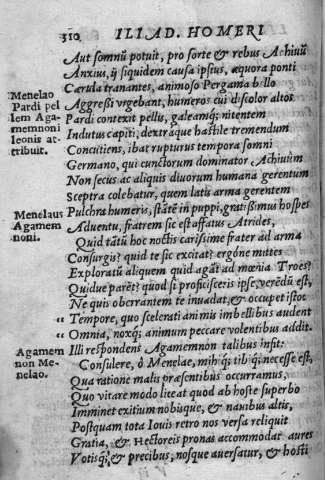 310 ILIAD. HOMERI
Aut somnũ potuit, pro sorte & rebus Achiuũ
Anxius, ij siquidem causa ipsius, æquora ponti
Cærula tranantes, animoso Pergama bello
Aggressi vrgebant, humeros cui discolor altos
Pardi contexit pellis, galeamq; nitentem
Indutus capiti, dextraque hastile tremendum
Concutiens, ibat rupturus tempora somni
Germano, qui cunctorum dominator Achiuûm
Non secus ac aliquis diuorum humana gerentum
Sceptra colebatur, quem latis arma gerentem
Pulchra humeris, stātē in puppi, gratissimus hospes
Aduentu, fratrem sic est affatus Atrides,
Quid tātũ hoc noctis carissime frater ad arma
Consurgis? quid te sic excitat? ergóne mittes
Exploratũ aliquem quid agāt ad mœnia Troes?
Quidue parēt? quod si proficisceris ipse, verēdũ est,
Ne quis oberrantem te inuadat, & occupet istoc
“ Tempore, quo scelerati animis imbellibus audent
“ Omnia, noxq; animum peccare volentibus addit.
Illi respōdens Agamemnōn talibus infit:
Consulere, ô Menelae, mihiq; tibiq; necesse est,
Qua ratione malis præsentibus occurramus,
Quo vitare modo liceat quod ab hoste superbo
Imminet exitium nobisque, & nauibus altis,
Postquam tota Iouis retro nos versa reliquit
Gratia, & Hectoreis pronas accommodat aures
Votisq; & precibus, nosque auersatur, & hosti
Menelao
Pardi pel
lem Aga-
memnoni
leonis at-
tribuit.
Menelaus
Agamem
noni.
Agamem
non Me-
nelao.